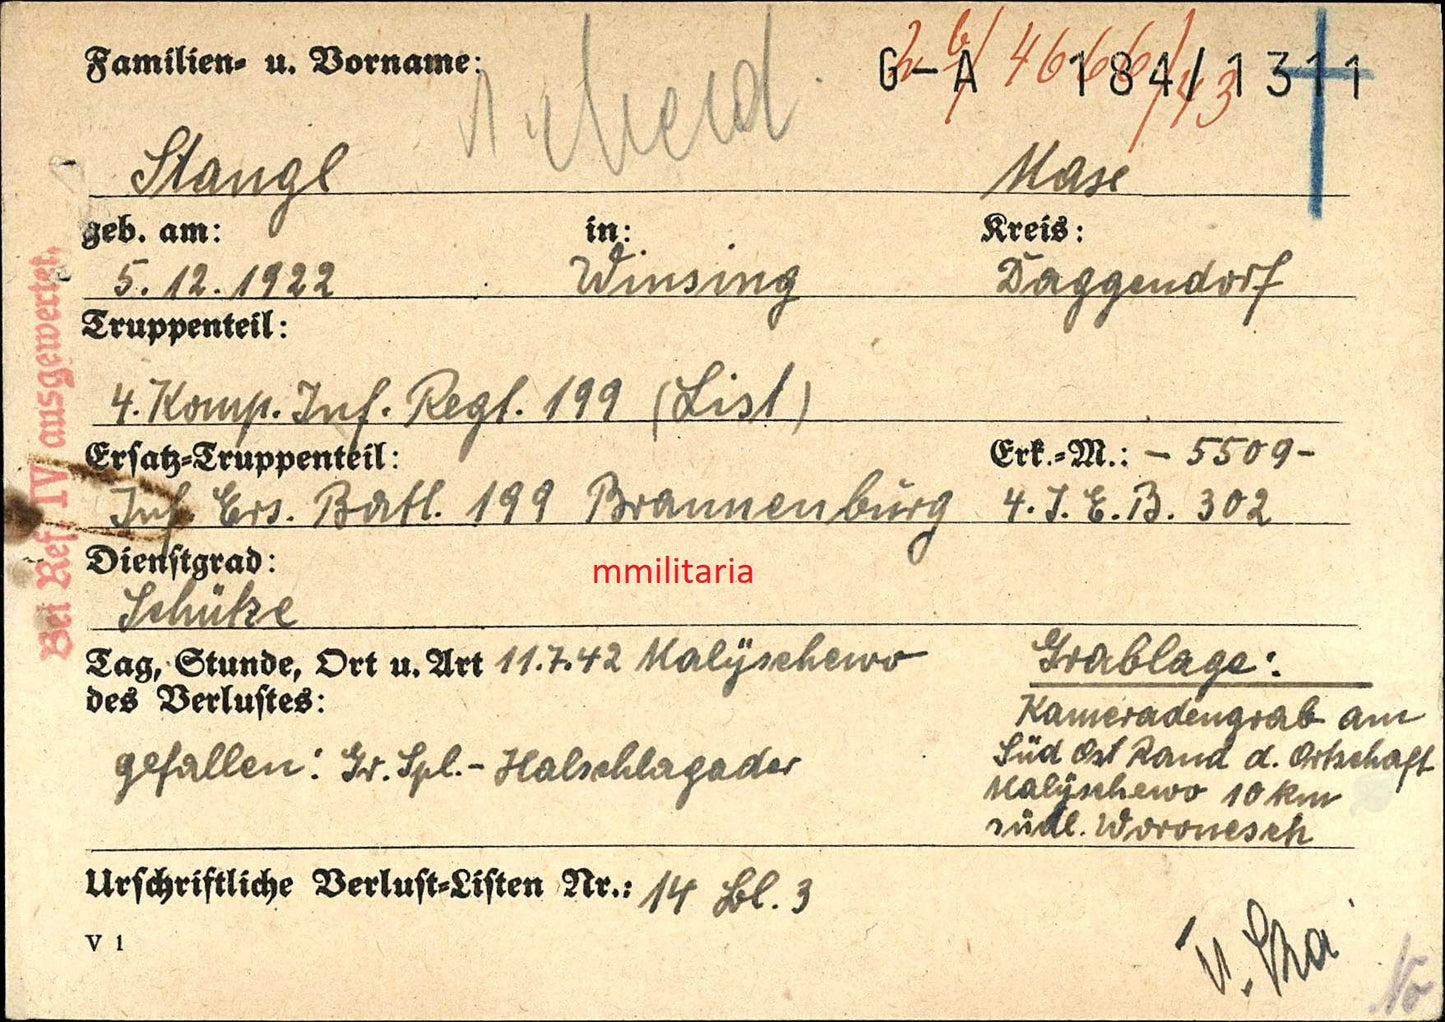 Familien- u. Vorname:
G-A 184/1311
Stangl Max
geb. am: in: Kreis:
5. 12. 1922 Winsing Daggendorf
Truppenteil:
4. Komp. Inf. Regt. 199 (List)
Ersatz-Truppenteil: Erk.-M.: - 5509-
Inf. Ers. Batl. 199 Brannenburg 4. J. E. B. 302
Dienstgrad:
mmilitaria
Schütze
Tag, Stunde, Ort u. Art 11.7.42 Malÿschewo
des Verlustes:
gefallen: Gr. Spl. - Halschlagader
Grablage:
Kameradengrab am
Süd Ost Rand d. Ortschaft
Malÿschewo 10 km
südl. Woronesch
Urschriftliche Verlust-Listen Nr.: 14 Bl. 3
V 1
Bei Ref IV ausgewertet.